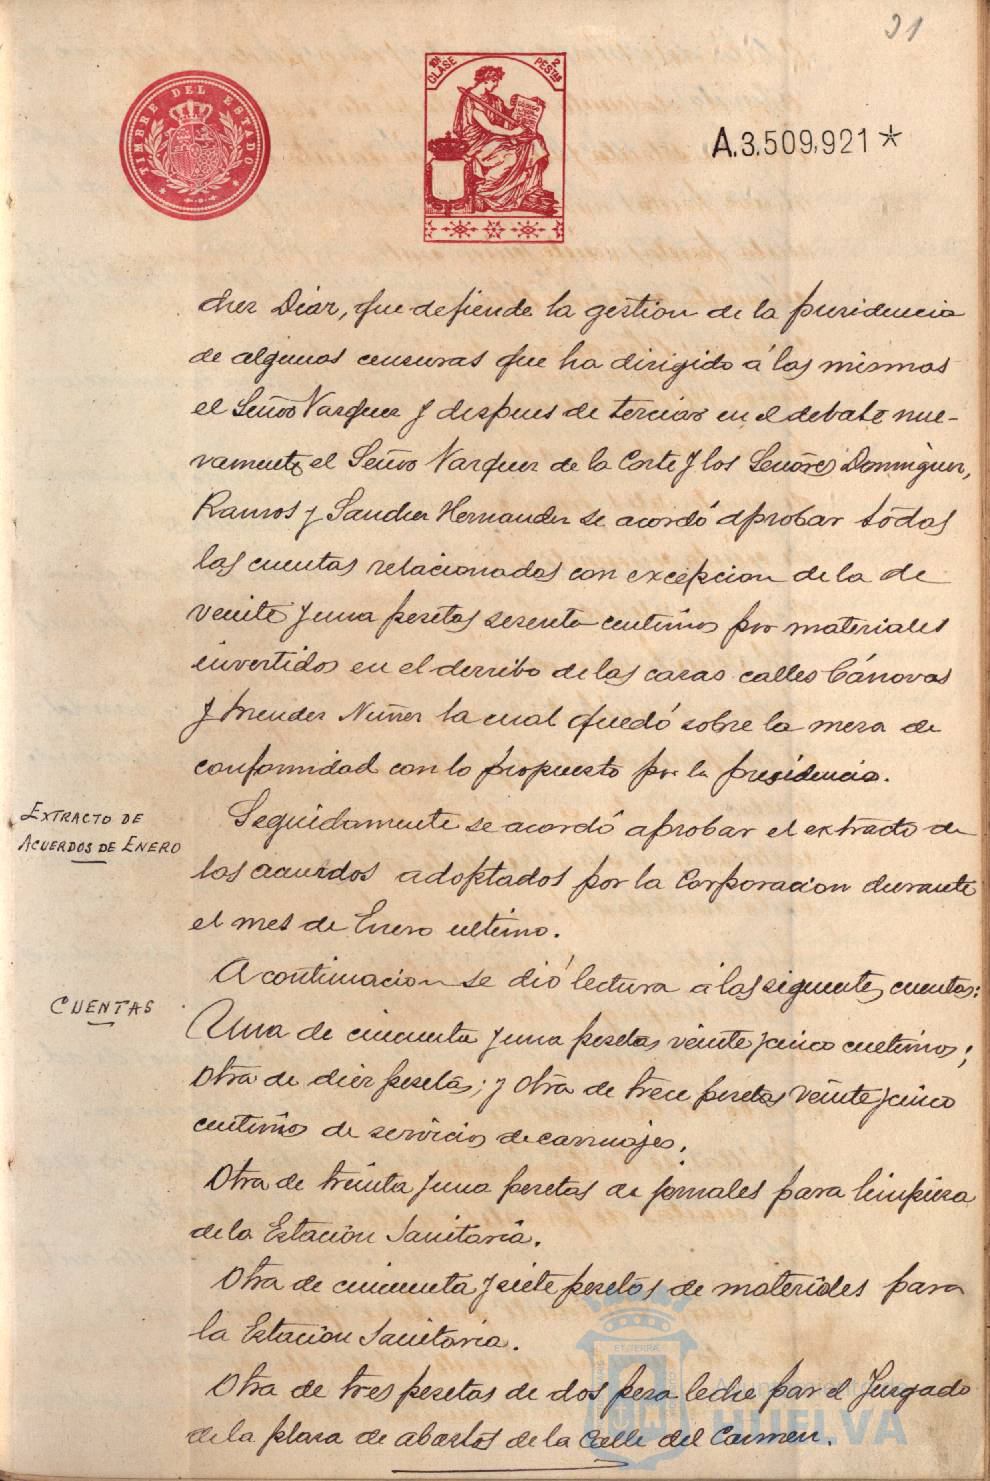 31
TIMBRE DEL ESTADO
10ª CLASE
2 PESTAS
A.3,509,921*
chez Diaz, que defiende la gestion de la presidencia
de algunas censuras que ha dirigido á las mismas
el Señor Vazquez y despues de terciar en el debate nue-
vamente el Señor Vazquez de la Corte y los Señores Dominguez,
Ramos y Sanchez Hernandez se acordó aprobar todas
las cuentas relacionadas con excepcion de la de
veinte y una pesetas sesenta centimos por materiales
invertidos en el derribo de las casas calles Cánovas
y Mendez Nuñez la cual quedó sobre la mesa de
conformidad con lo propuesto por la presidencia.
EXTRACTO DE
ACUERDOS DE ENERO
Seguidamente se acordó aprobar el extracto de
los acuerdos adoptados por la Corporacion durante
el mes de Enero ultimo.
CUENTAS
A continuacion se dió lectura á las siguientes cuentas:
Una de cincuenta y una pesetas veinte y cinco centimos;
Otra de diez pesetas; y otra de trece pesetas veinte y cinco
centimos de servicios de carruajes.
Otra de treinta y una pesetas de jornales para limpieza
de la Estacion Sanitaria.
Otra de cincuenta y siete pesetas de materiales para
la Estacion Sanitaria.
Otra de tres pesetas de dos pesa leche par el Juzgado
de la plaza de abastos de la Calle del Carmen.
Ayuntamiento de
HUELVA